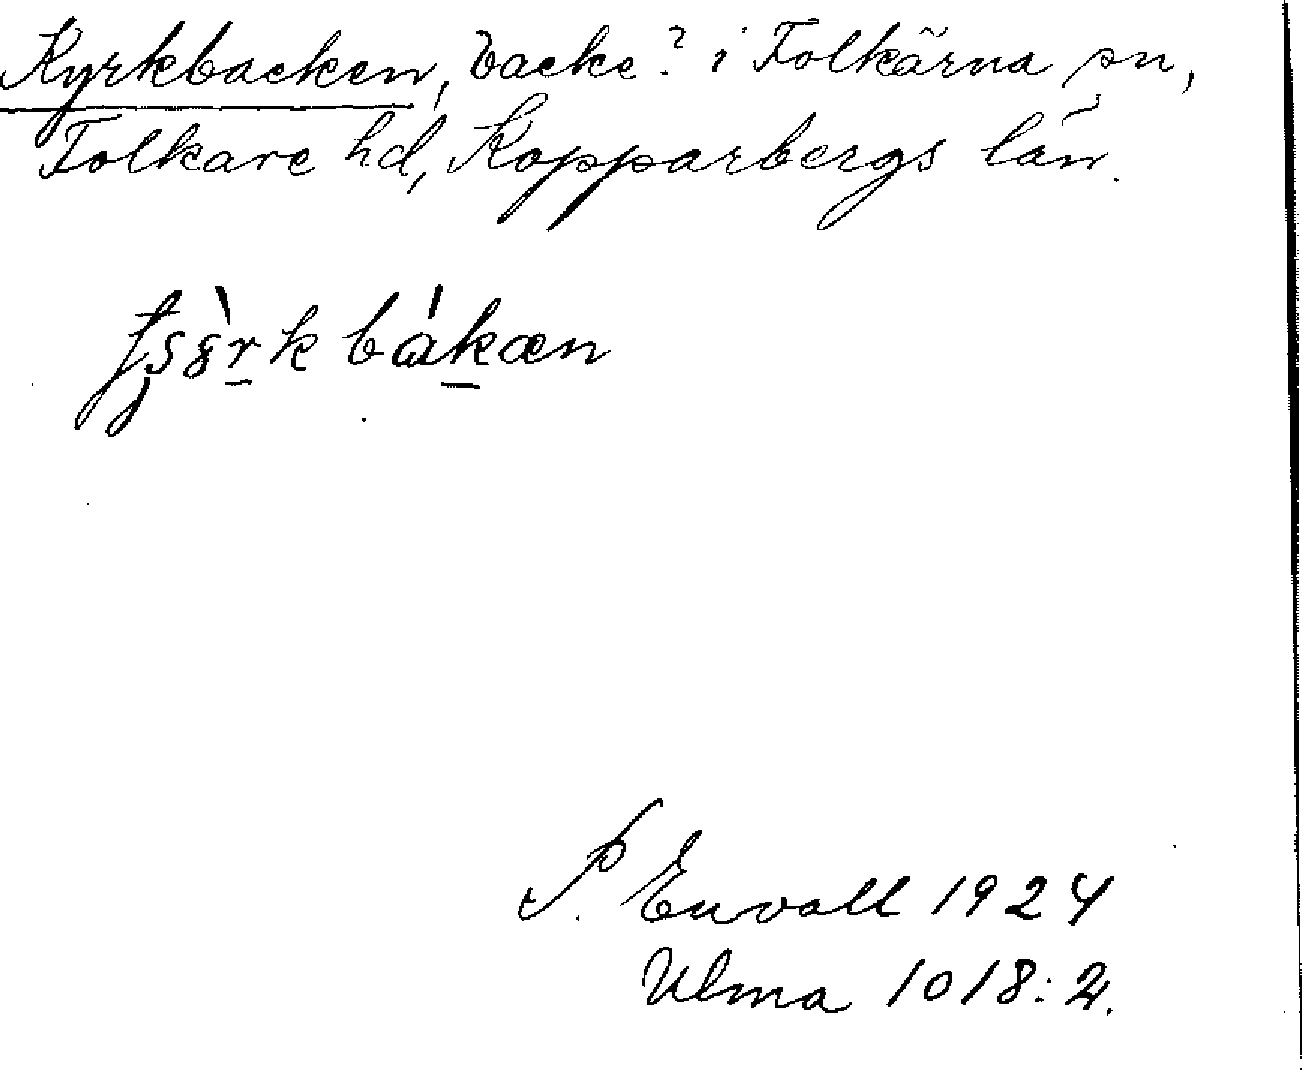 Kyrkbacken, backe? i Folkärna sn,
Folkare hd, Kopparbergs län.
P. Envall 1924
Ulma 1018:2.